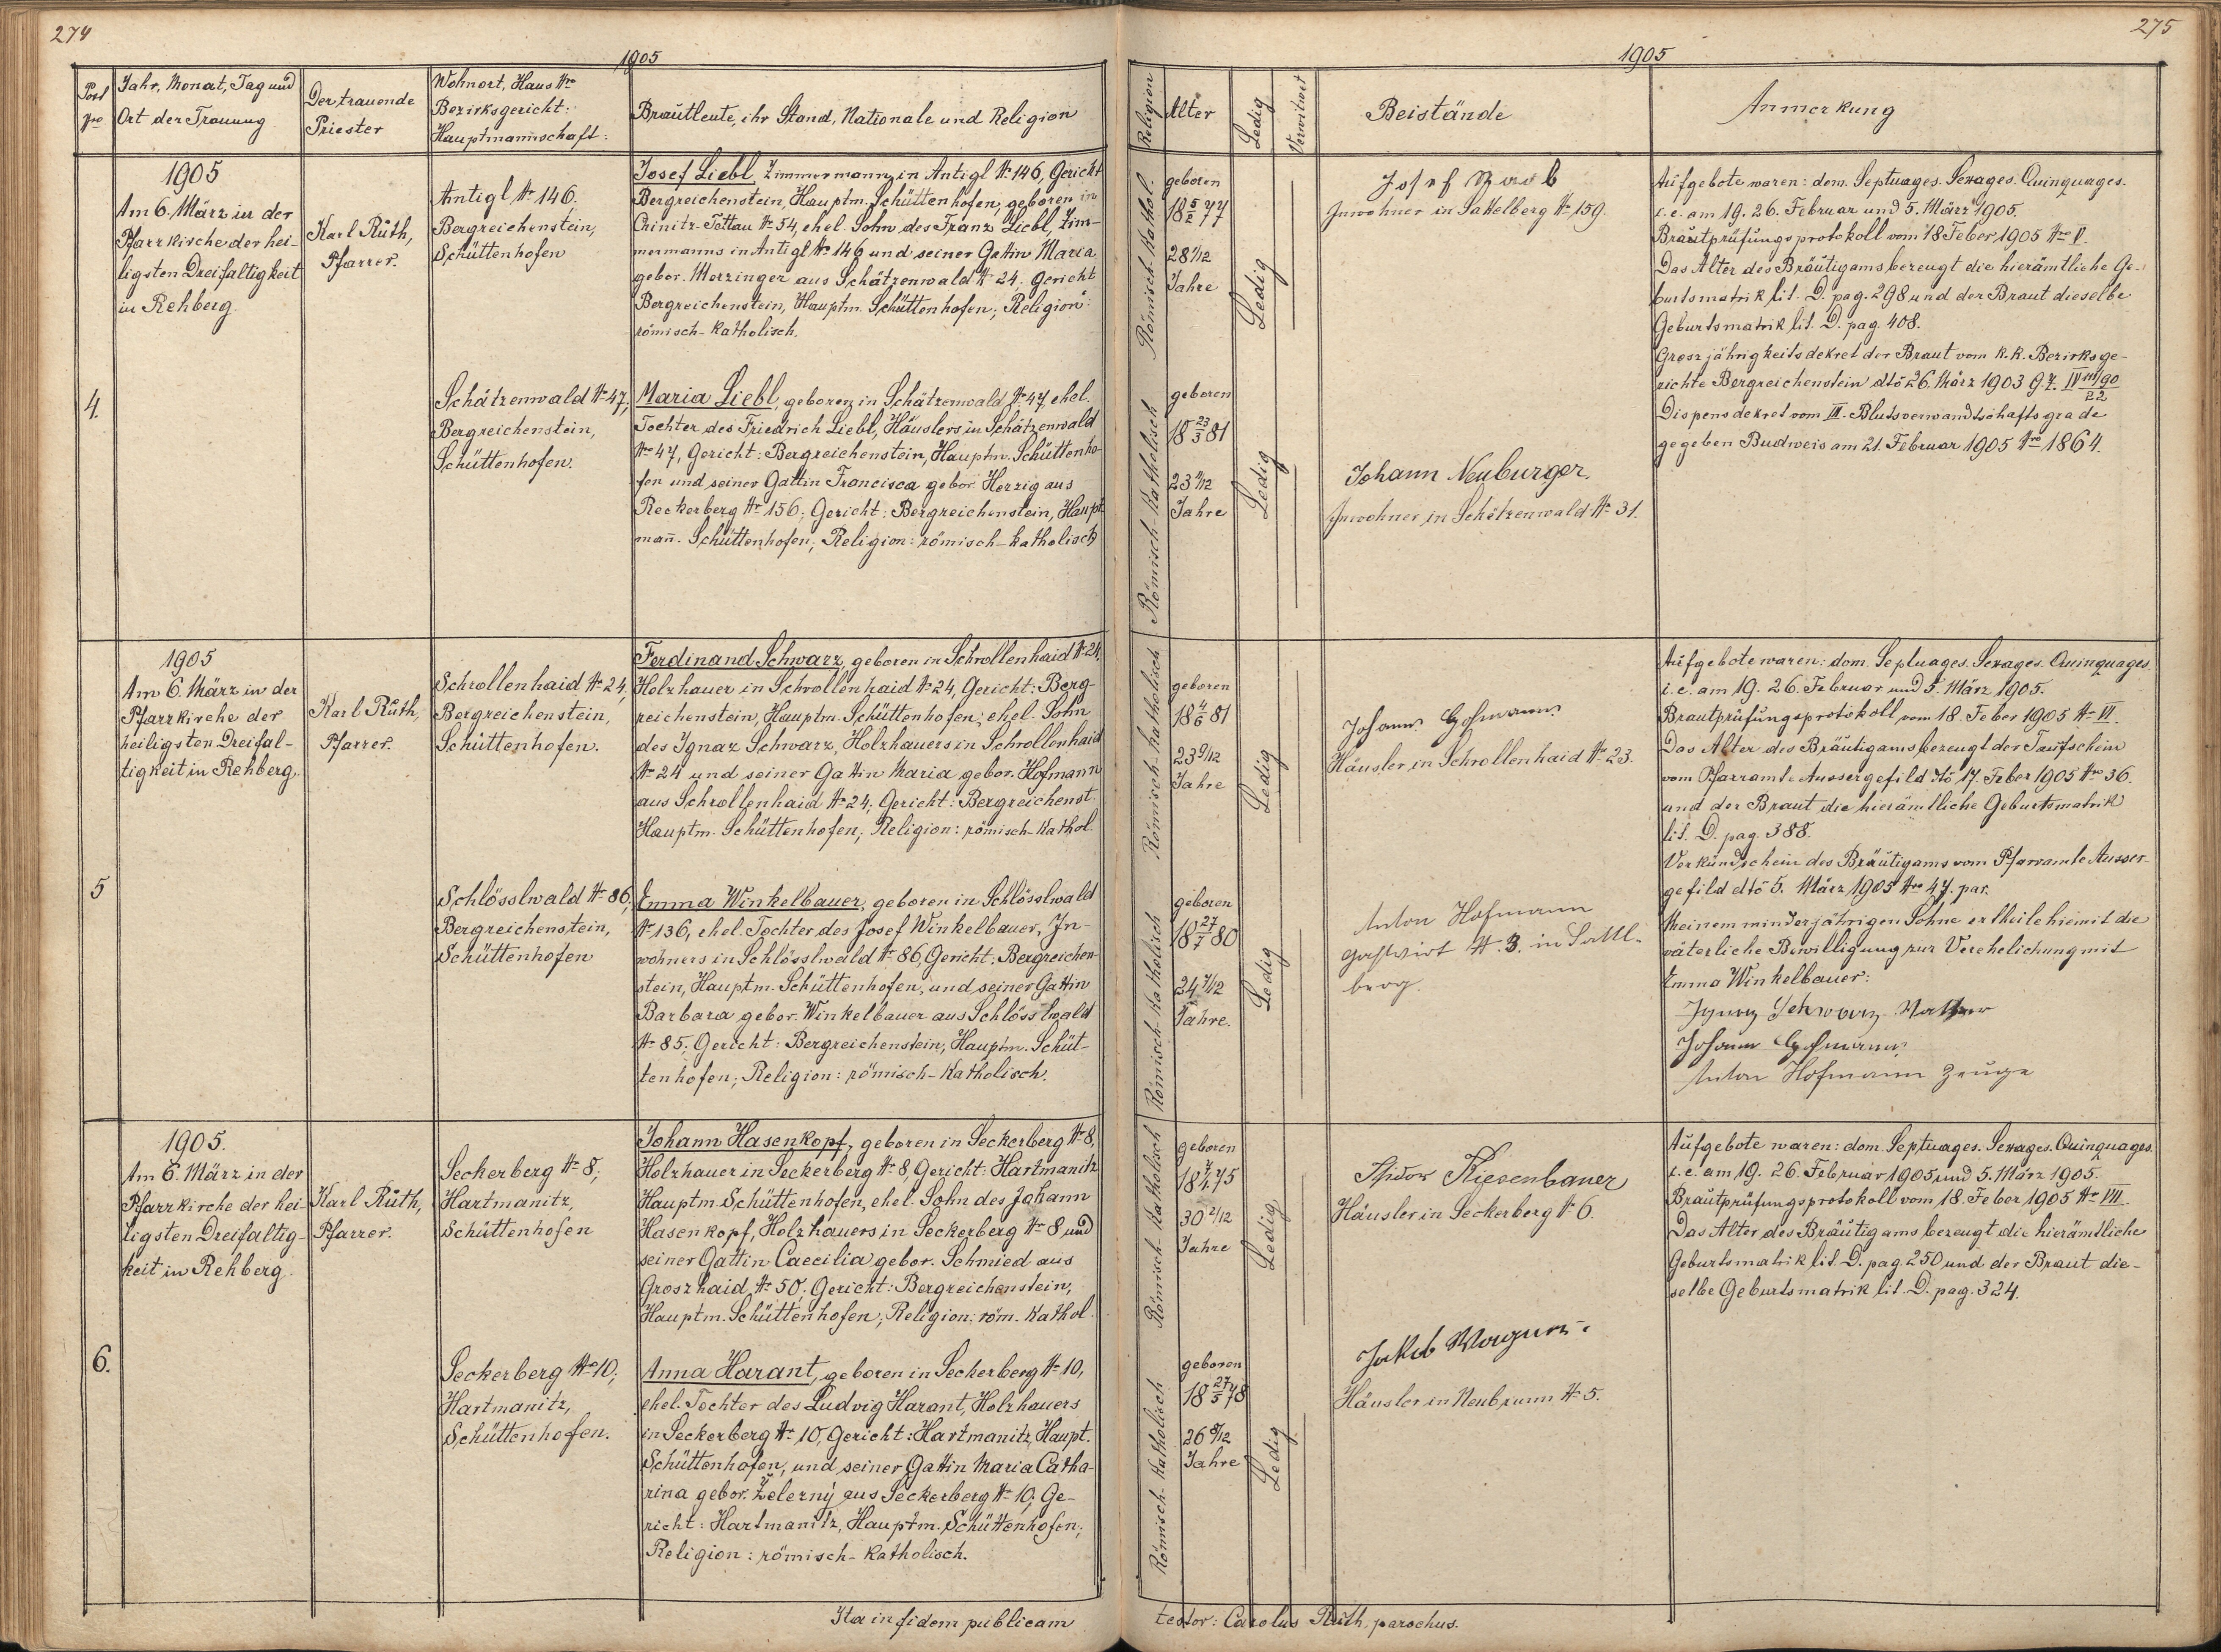 274
1905
Post Nro
Jahr, Monat, Tag und
Ort der Trauung
Der trauende
Priester
Wohnort, Haus Nro
Bezirksgericht:
Hauptmannschaft:
Brautleute, ihr Stand, Nationale und Religion
4.
1905
Am 6. März in der
Pfarrkirche der hei-
ligsten Dreifaltigkeit
in Rehberg.
Karl Rŭth,
Pfarrer.
Antigl No 146.
Bergreichenstein,
Schüttenhofen
Josef Liebl, Zimmermann in Antigl No 146, Gericht
Bergreichenstein, Hauptm. Schüttenhofen, geboren in
Chinitz-Tettau No 54, ehel. Sohn des Franz Liebl, Zim-
mermanns in Antigl No 146 und seiner Gattin Maria
gebor. Merzinger aus Schätzenwald No 24. Gericht
Bergreichenstein, Hauptm. Schüttenhofen; Religion:
römisch-katholisch.
Schätzenwald No 47,
Bergreichenstein,
Schüttenhofen.
Maria Liebl, geboren in Schätzenwald No 47, ehel.
Tochter des Friedrich Liebl, Häuslers in Schätzenwald
No 47, Gericht: Bergreichenstein, Hauptm. Schüttenho-
fen und seiner Gattin Francisca gebor. Herzig aus
Reckerberg No 156; Gericht: Bergreichenstein, Haupt-
mañ. Schüttenhofen; Religion: römisch-katholisch
5
1905
Am 6. März in der
Pfarrkirche der
heiligsten Dreifal-
tigkeit in Rehberg.
Karl Rŭth,
Pfarrer.
Schrollenhaid No 24,
Bergreichenstein,
Schüttenhofen.
Ferdinand Schwarz, geboren in Schrollenhaid No 24,
Holzhauer in Schrollenhaid No 24, Gericht: Berg-
reichenstein, Hauptm. Schüttenhofen; ehel. Sohn
des Ignaz Schwarz, Holzhauers in Schrollenhaid
No 24 und seiner Gattin Maria gebor. Hofmann
aus Schrollenhaid No 24; Gericht: Bergreichenst.
Hauptm. Schüttenhofen; Religion: römisch-kathol.
Schlösslwald No 86,
Bergreichenstein,
Schüttenhofen
Emma Winkelbauer, geboren in Schlösslwald
No 136, ehel. Tochter des Josef Winkelbauer, In-
wohners in Schlösslwald No 86, Gericht: Bergreichen-
stein, Hauptm. Schüttenhofen, und seiner Gattin
Barbara gebor. Winkelbauer aus Schlösslwald
No 85; Gericht: Bergreichenstein; Hauptm. Schüt-
tenhofen; Religion: römisch-katholisch.
6.
1905.
Am 6. März in der
Pfarrkirche der hei-
ligsten Dreifaltig-
keit in Rehberg.
Karl Rŭth,
Pfarrer.
Seckerberg No 8;
Hartmanitz,
Schüttenhofen
Johann Hasenkopf, geboren in Seckerberg No 8,
Holzhauer in Seckerberg No 8, Gericht: Hartmanitz
Hauptm. Schüttenhofen, ehel. Sohn des Johann
Hasenkopf, Holzhauers in Seckerberg No 8 und
seiner Gattin Caecilia gebor. Schmied aus
Groszhaid No 50; Gericht: Bergreichenstein,
Hauptm. Schüttenhofen; Religion: röm. kathol.
Seckerberg No 10;
Hartmanitz,
Schüttenhofen.
Anna Harant, geboren in Seckerberg No 10,
ehel. Tochter des Ludvig Harant, Holzhauers
in Seckerberg No 10, Gericht: Hartmanitz, Haupt.
Schüttenhofen, und seiner Gattin Maria Catha-
rina gebor. Železný aus Seckerberg No 10; Ge-
richt: Hartmanitz, Hauptm. Schüttenhofen;
Religion: römisch-katholisch.
Ita in fidem publicam
275
1905
Religion
Alter
Ledig
Verwitwet
Beistände
Anmerkung
Römisch-kathol.
geboren
18 5/2 77
28 1/12
Jahre
Ledig
Josef
Inwohner in Sattelberg No 159.
Römisch-katholisch
geboren
18 23/3 81
23 11/12
Jahre
Ledig
Johann Neuburger.
Inwohner in Schätzenwald No 31.
Aufgebote waren: dom. Septuages. Sexages. Quinquages.
i. e. am 19. 26. Februar und 5. März 1905.
Brautprüfungsprotokoll vom 18 Feber 1905 Nro V.
Das Alter des Bräutigams bezeugt die hierämtliche Ge-
burtsmatrik lit. D. pag. 298 und der Braut dieselbe
Geburtsmatrik lit. D. pag. 408.
Groszjährigkeitsdekret der Braut vom k.k. Bezirksge-
richte Bergreichenstein dtô 26. März 1903
Dispensdekret vom III. Blutsverwandtschaftsgrade
gegeben Budweis am 21. Februar 1905 Nro 1864.
Römisch-katholisch
geboren
18 4/6 81
23 9/12
Jahre
Ledig
Johann Hofmann
Häusler in Schrollenhaid No 23.
Römisch-katholisch
geboren
18 27/7 80
24 7/12
Jahre.
Ledig
Anton Hofmann
Gastwirt N. 3. in Sattl-
berg.
Aufgebote waren: dom. Septuages. Sexages. Quinquages.
i. e. am 19. 26. Februar und 5. März 1905.
Brautprüfungsprotokoll vom 18. Feber 1905 No VI.
Das Alter des Bräutigams bezeugt der Taufschein
vom Pfarramte Aussergefild dtô 17. Feber 1905 Nro 36.
und der Braut die hierämtliche Geburtsmatrik
lit. D. pag. 388.
Verkündschein des Bräutigams vom Pfarramte Ausser-
gefild dtô 5. März 1905 Nro 47. par.
Meinem minderjährigen Sohne ertheile hiemit die
väterliche Bewilligung zur Verehelichung mit
Emma Winkelbauer:
Ignaz Schwarz Vatter
Johann Hofmann
Anton Hofmann Zeuge
Römisch-katholisch
geboren
18 7/1 75
30 2/12
Jahre
Ledig
Isidor Kiesenbauer
Häusler in Seckerberg No 6.
Römisch-katholisch
geboren
18 27/5 78
26 9/12
Jahre
Ledig
Jakob Wagner
Häusler in Neubrunn No 5.
Aufgebote waren: dom. Septuages. Sexages. Quinquages.
i. e. am 19. 26. Februar 1905 und 5. März 1905.
Brautprüfungsprotokoll vom 18. Feber 1905 No VII.
Das Alter des Bräutigams bezeugt die hierämtliche
Geburtsmatrik lit. D. pag. 250 und der Braut die-
selbe Geburtsmatrik lit. D. pag. 324.
testor: Carolus Rŭth, parochus.